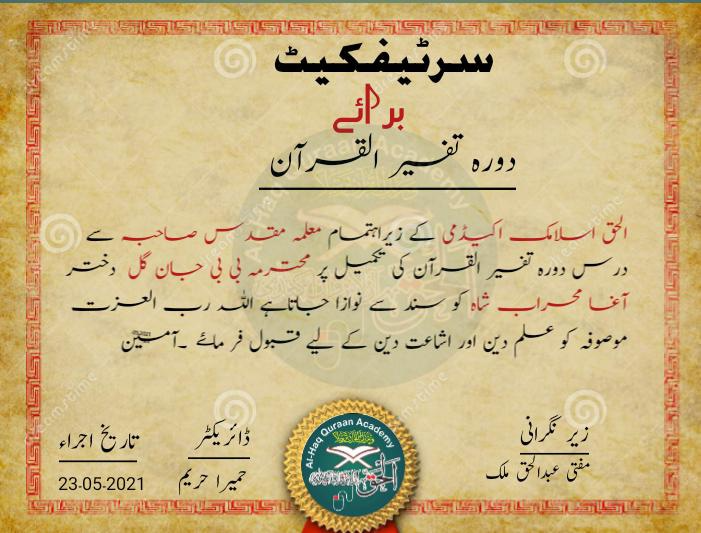 سرٹیفکیٹ
برائے
دورہ تفسیر القرآن
الحق اسلامک اکیڈمی کے زیراہتمام معلمہ مقدس صاحبہ سے
درس دورہ تفسیر القرآن کی تکمیل پر محترمہ بی بی جان گل دختر
آغا محراب شاہ کو سند سے نوازا جاتاہے اللہ رب العزت
موصوفہ کو علم دین اور اشاعت دین کے لیے قبول فرمائے ۔آمین
زیر نگرانی
مفتی عبدالحق ملک
ڈائریکٹر
حمیرا حریم
تاریخ اجراء
23-05-2021
Al-Haq Quraan Academy
الحق